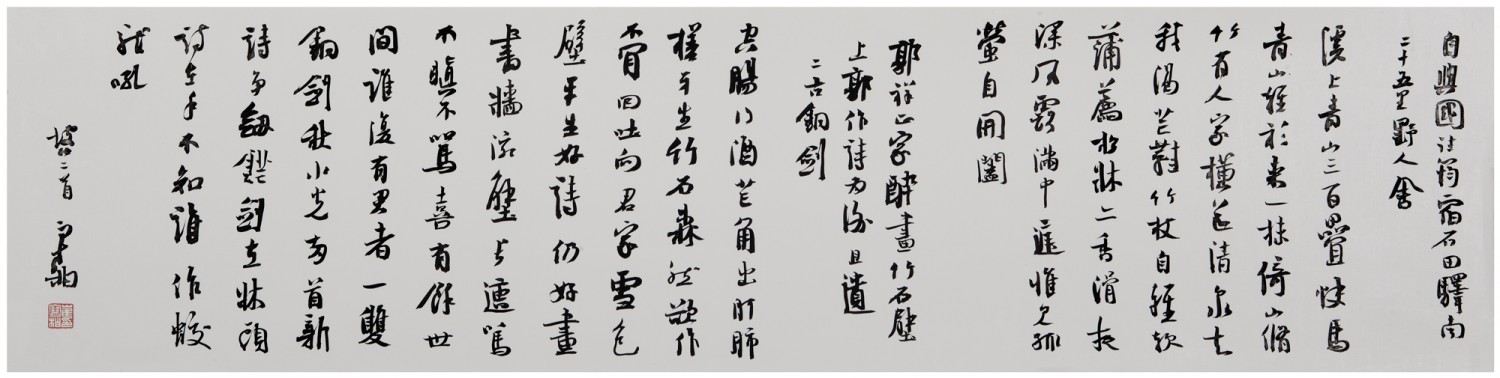 自興國往筠宿石田驛南
二十五里野人舍
溪上青山三百疊快馬
青山輕衫來一抹倚山脩
竹有人家橫道清泉知
我渴芒鞋竹杖自輕軟
蒲薦松牀亦香滑夜
深風露滿中庭惟見孤
螢自開闔
郭祥正家醉畫竹石壁
上郭作詩為謝且遺
二古銅劍
空腸得酒芒角出肝肺
槎牙生竹石森然欲作
不可回吐向君家雪色
壁平生好詩仍好畫
書牆涴壁長遭罵
不瞋不罵喜有餘世
間誰復有君者一雙
銅劍秋水光兩首新
詩爭劍鋩劍在牀頭
詩在手不知誰作蛟
龍吼
二首